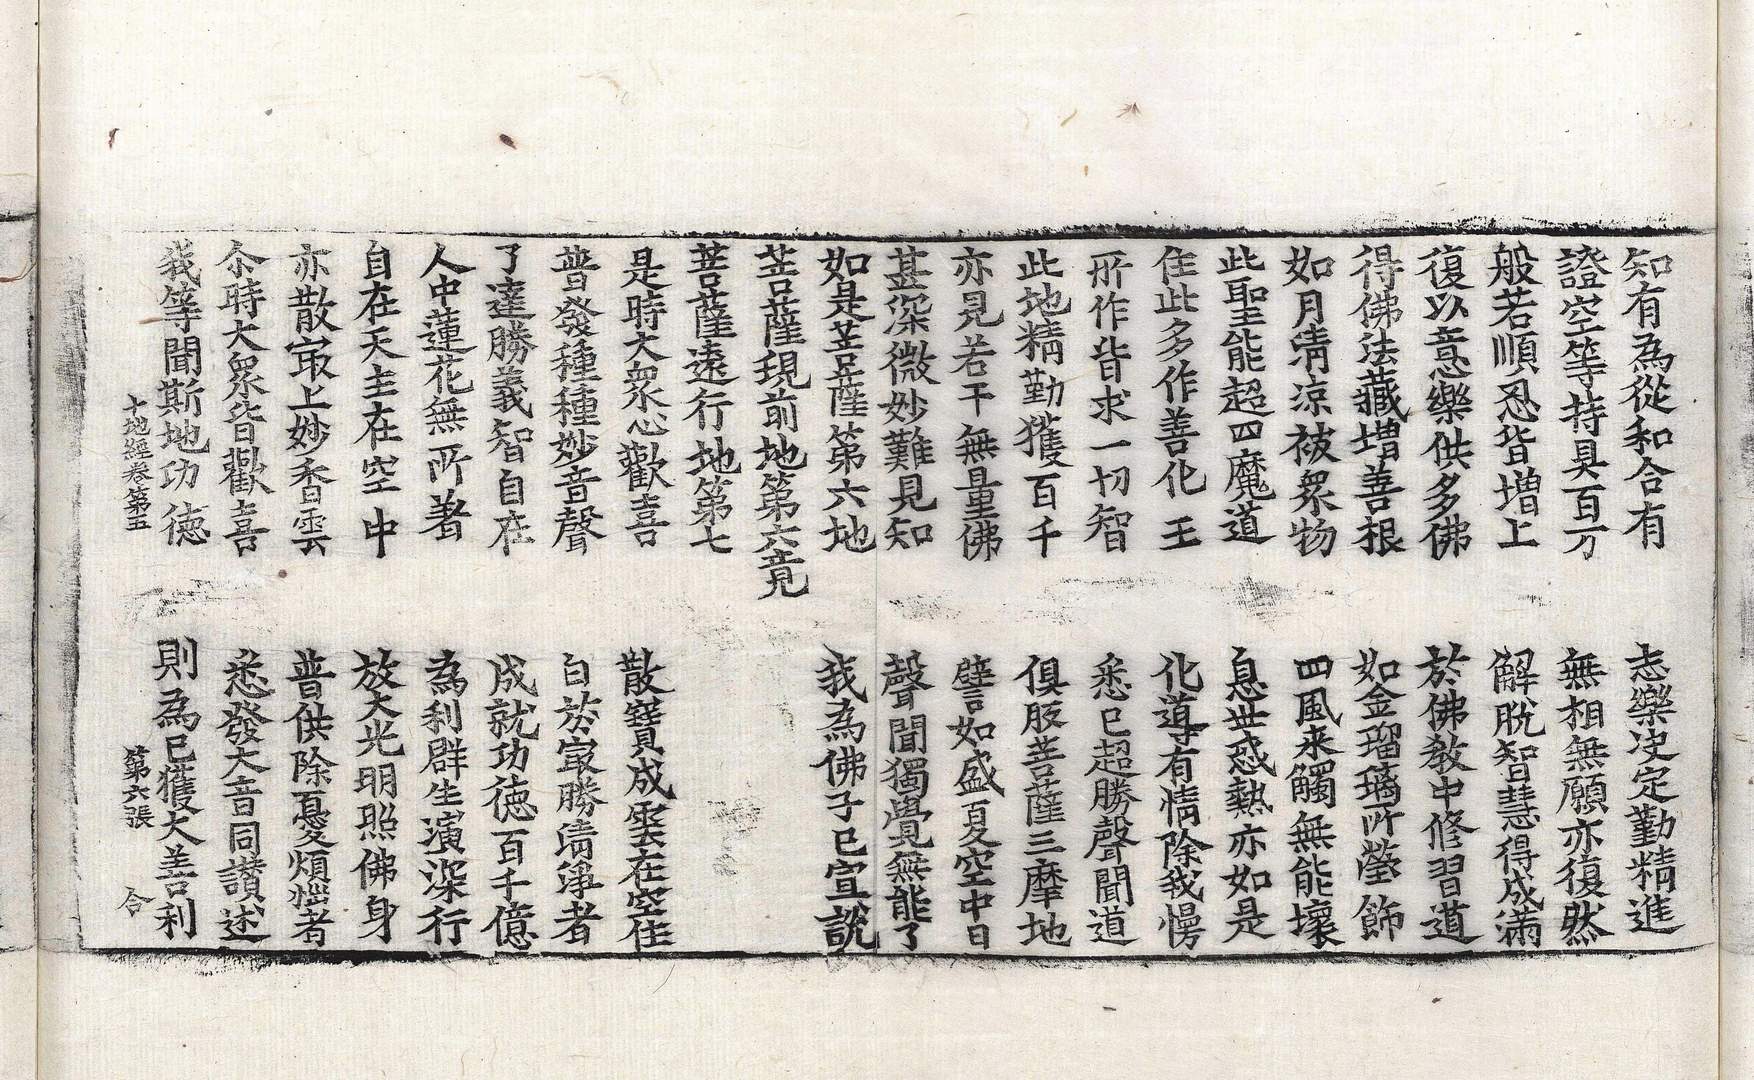 知有為從和合有　志樂決定勤精進
證空等持具百万　無相無願亦復然
般若順忍皆增上　解脫智慧得成滿
復以意樂供多佛　於佛教中修習道
得佛法藏增善根　如金瑠璃所瑩飾
如月淸凉被衆物　四風来觸無能壞
此聖能超四魔道　息世惑熱亦如是
住此多作善化王　化導有情除我慢
所作皆求一切智　悉已超勝聲聞道
此地精勤獲百千　俱胝菩薩三摩地
亦見若干無量佛　譬如盛夏空中日
甚深微妙難見知　聲聞獨覺無能了
如是菩薩第六地　我為佛子已宣說
菩薩現前地第六竟
菩薩遠行地第七
是時大衆心歡喜　散寶成雲在空住
普發種種妙音聲　白於㝡勝淸淨者
了達勝義智自在　成就功德百千億
人中蓮花無所著　為利群生演深行
自在天主在空中　放大光明照佛身
亦散㝡上妙香雲　普供除憂煩惱者
尒時大衆皆歡喜　悉發大音同讃述
我等聞斯地功德　則為已獲大善利
十地經卷第五　第六張　合